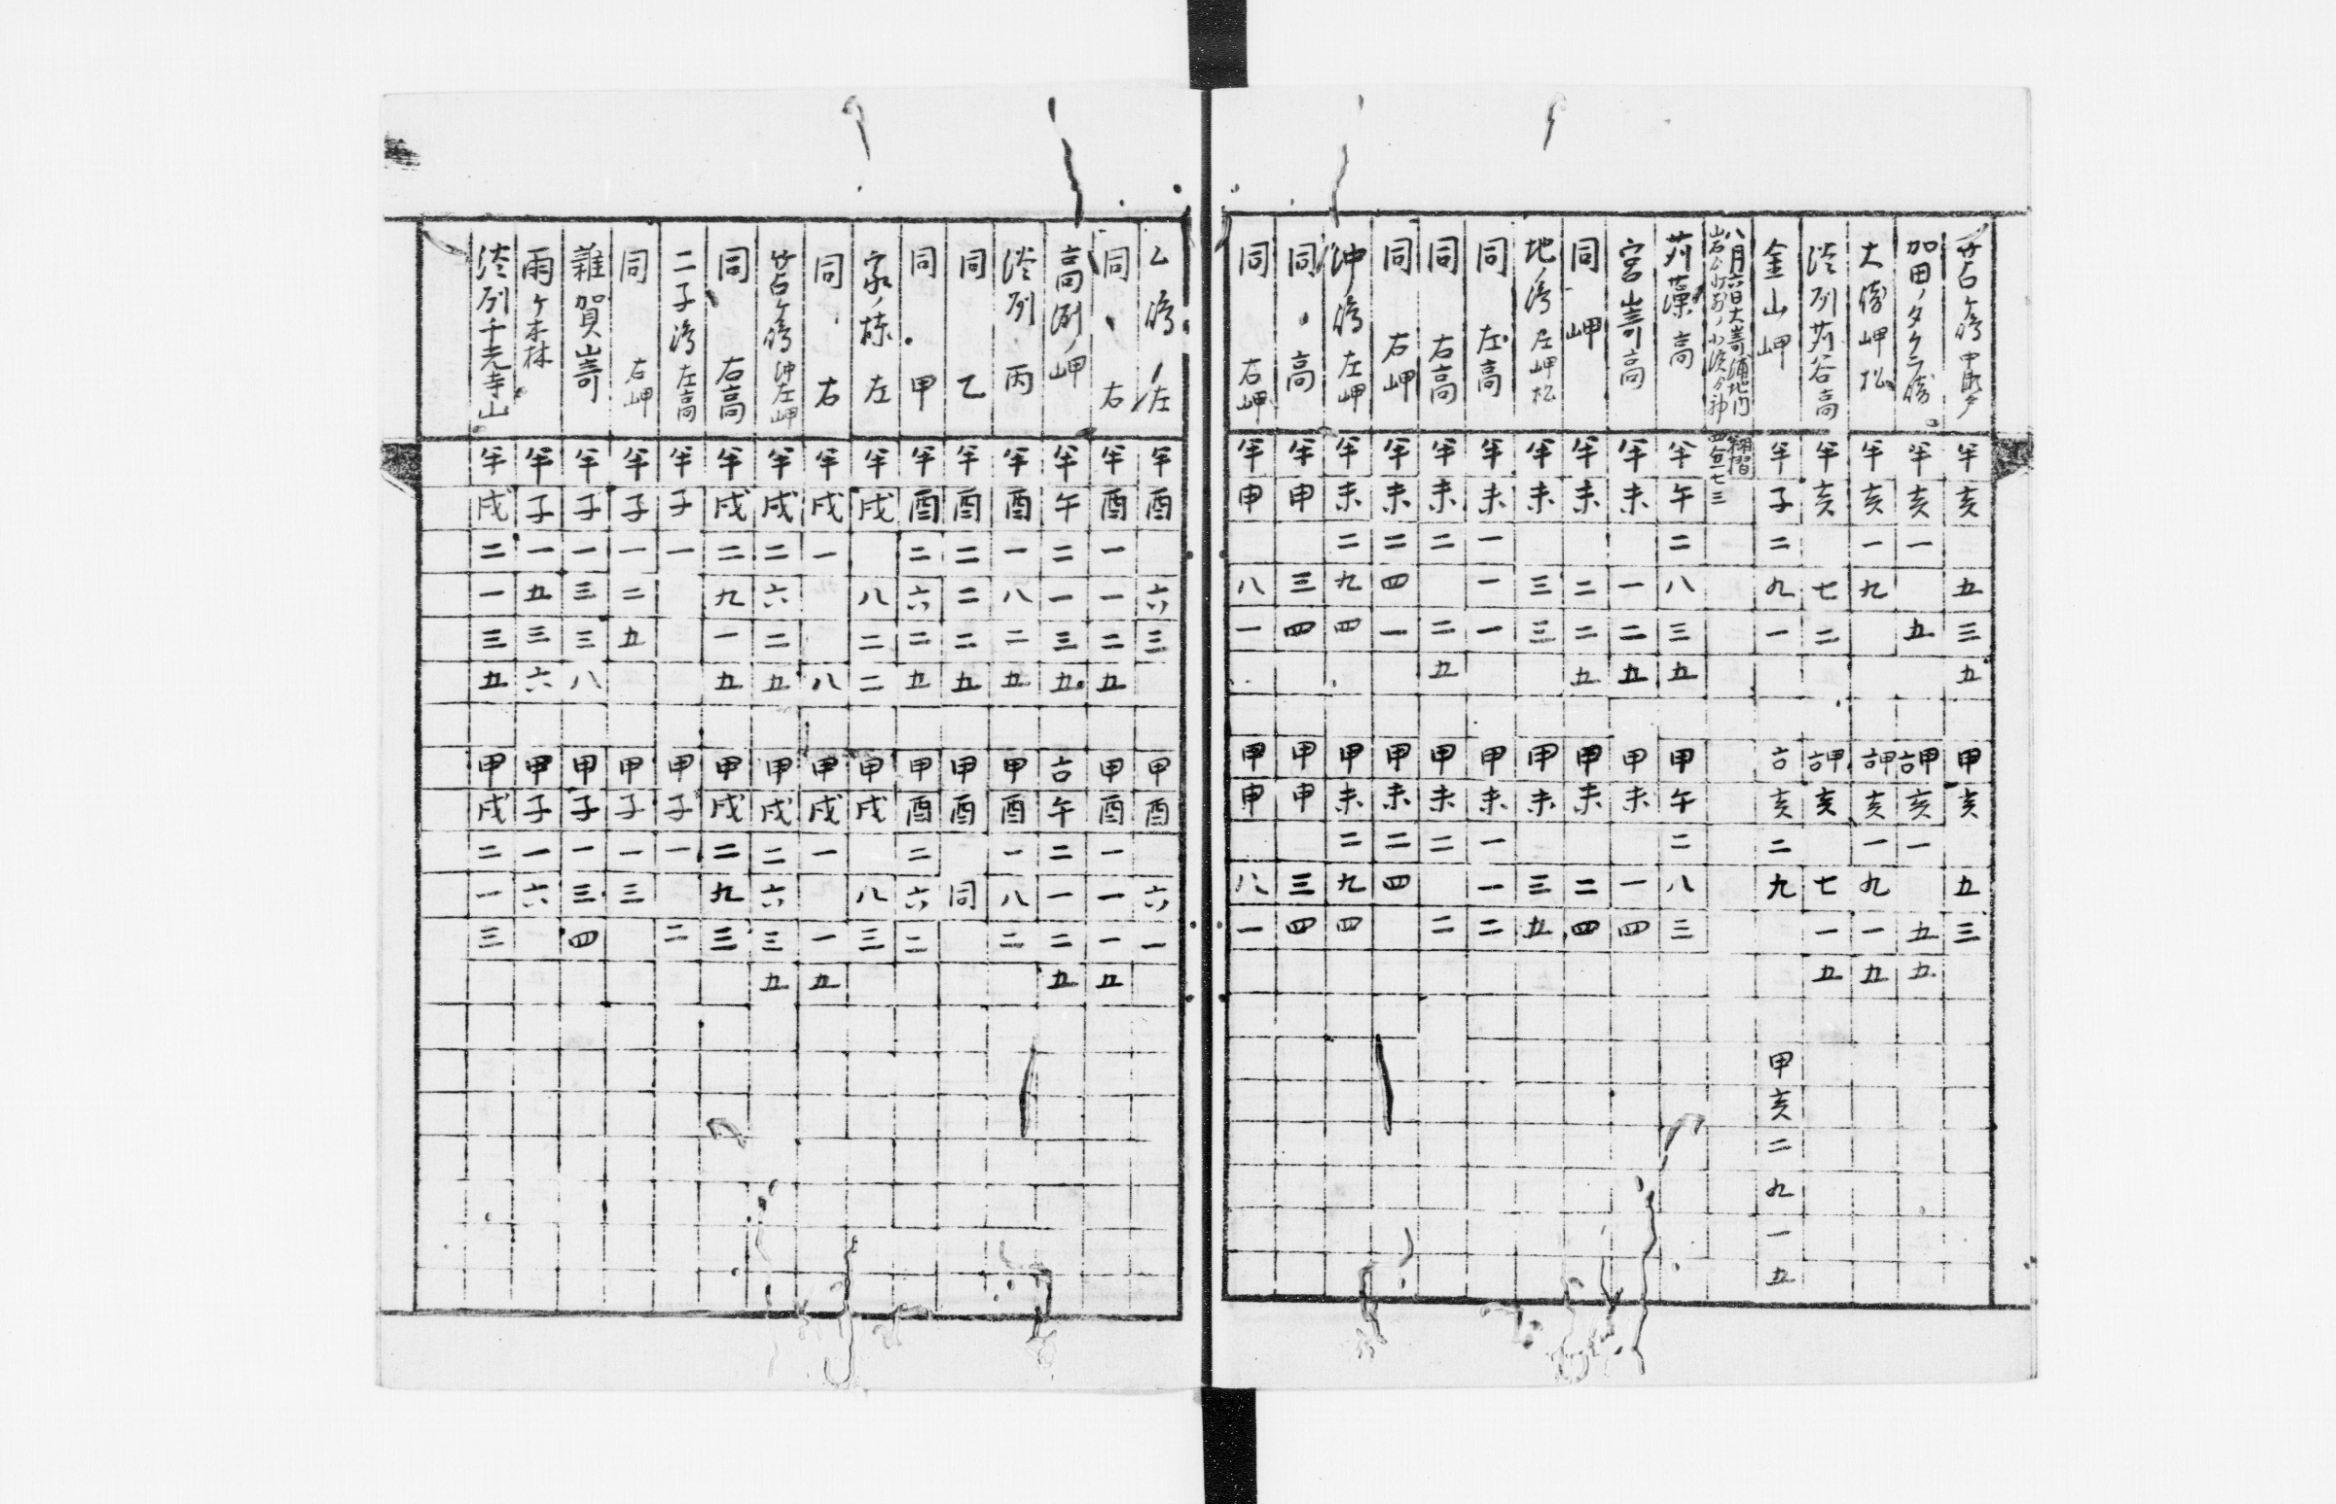 苫ケ嶋中 半亥五三五 甲亥五三
加田ノタクラ嵜 半亥一五 甲亥一五五
大 岬松 半亥一九 甲亥一九一五
淡刕苅谷高 半亥七二 甲亥七一五
金山岬 半子二九一 亥二九 甲亥二九一五
八月六日大嵜浦地内
四五七三
苅藻高 半午二八三五 甲午二八三
宮嵜高 半未一二五 甲未一四
同岬 半未二二五 甲未二四
地ノ嶋左岬松 半未三三 甲未三五
同左高 半未一一一 甲未一一二
同右高 半未二二五 甲未二二
同右岬 半未二四一 甲未二四
沖ノ嶋左岬 半未二九四 甲未二九四
同高 半申三四 甲申三四
同右岬 半申八一 甲申八一
乙嶋ノ左 半酉六三 甲酉六一
同右 半酉一一二五 甲酉一一一五
高刕ノ岬 半午二一三五 午二一二五
淡刕丙 半酉一八二五 甲酉一八二
同乙 半酉二二二五 甲酉同
同甲 半酉二六二五 甲酉二六二
家ノ棟左 半戌八二二 甲戌八三
同右 半戌一八 甲戌一一五
苫ケ嶋沖左岬 半戌二六二五 甲戌二六三五
同右高 半戌二九一五 甲戌二九三
二子嶋左高 半子一 甲子一二
同右岬 半子一二五 甲子一三
雜賀嵜 半子一三三八 甲子一三四
雨ケ森 半子一五三六 甲子一六
淡刕千光寺山 半戌二一三五 甲戌二一三